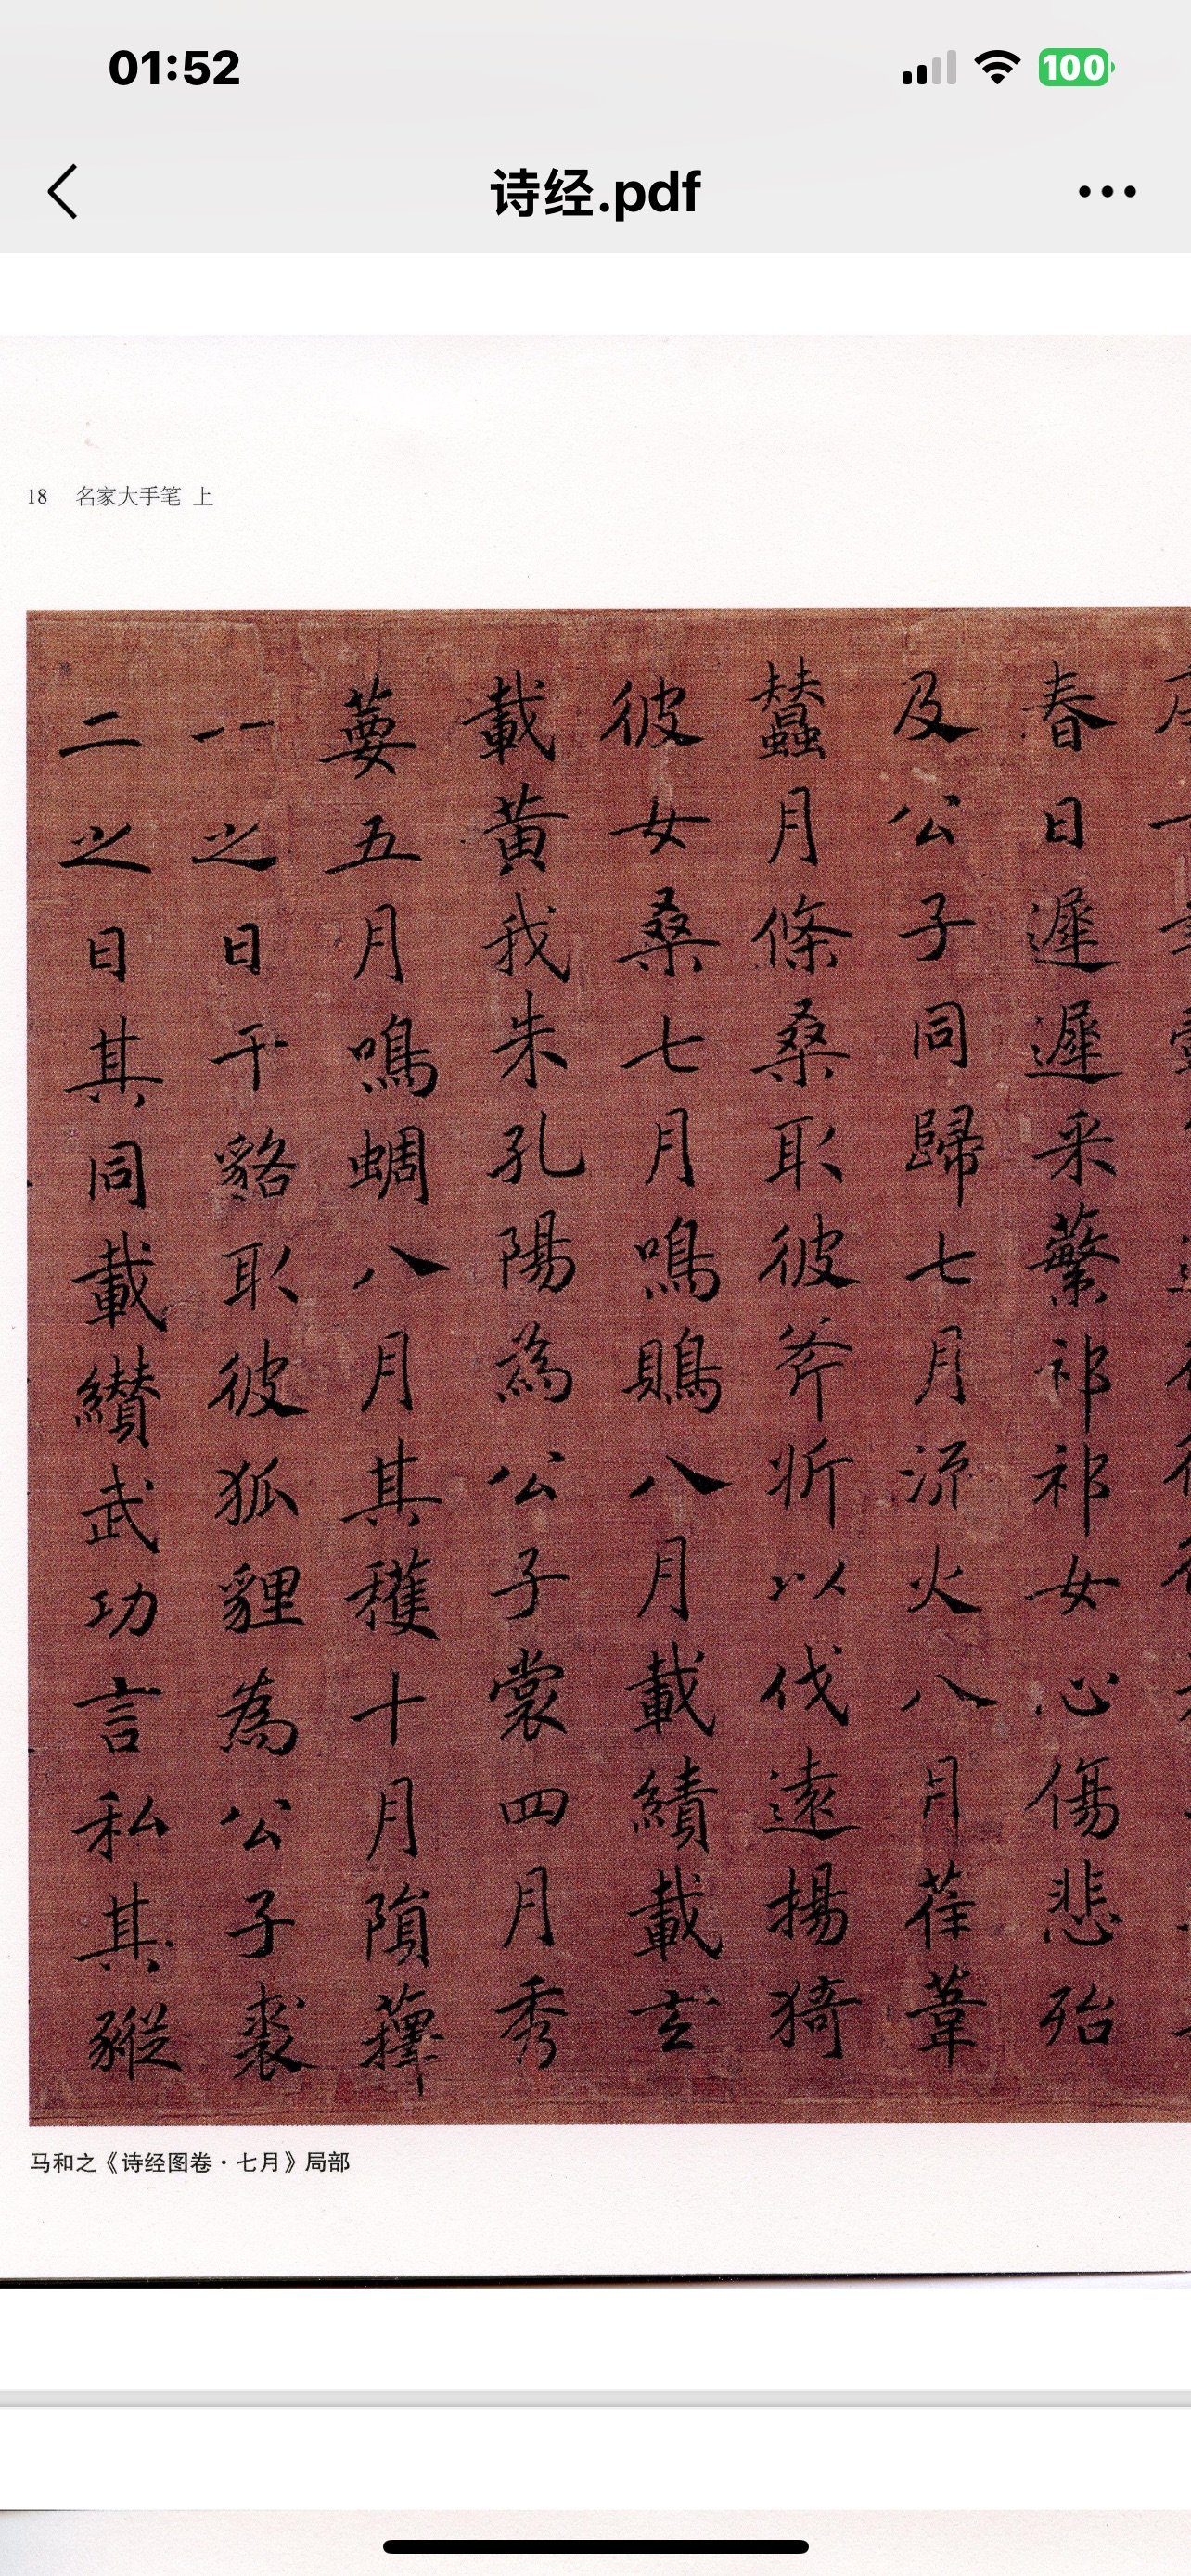 01:52
100
诗经.pdf
18 名家大手笔 上
春日遲遲采蘩祁祁女心傷悲殆
及公子同歸七月流火八月萑葦
蠶月條桑取彼斧斨以伐遠揚猗
彼女桑七月鳴鵙八月載績載玄
載黃我朱孔陽為公子裳四月秀
葽五月鳴蜩八月其穫十月隕蘀
一之日于貉取彼狐貍為公子裘
二之日其同載纘武功言私其豵
马和之《诗经图卷·七月》局部